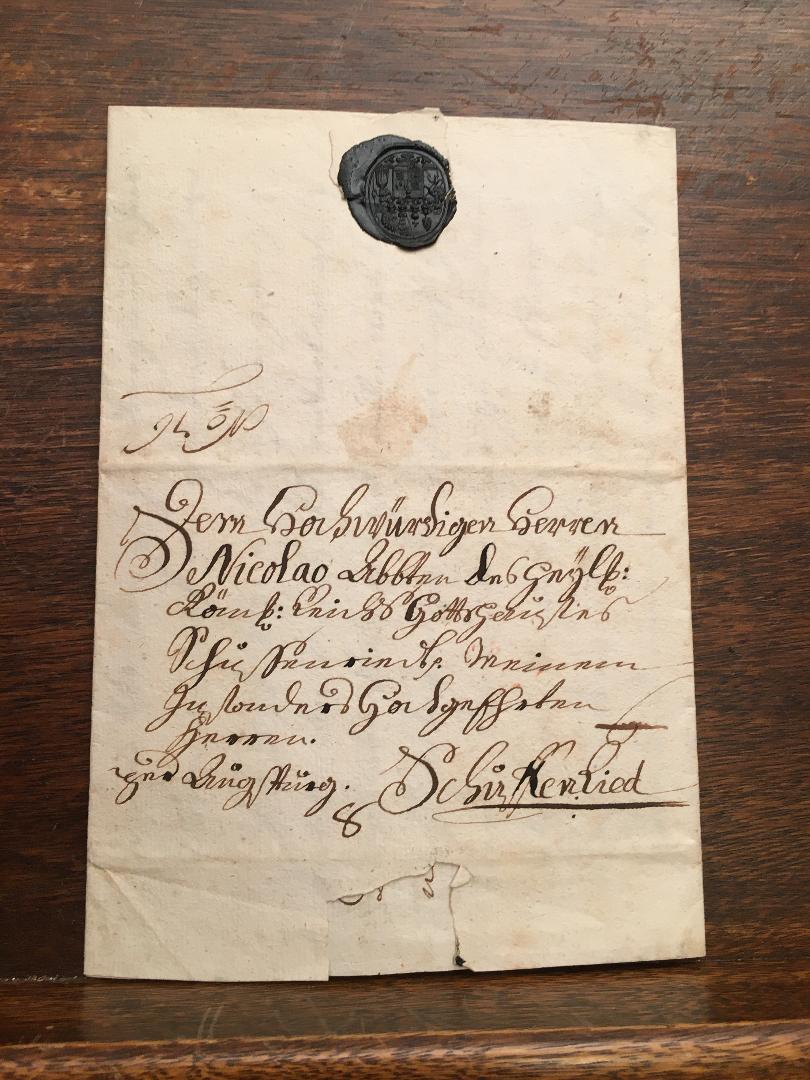 Dem Hochwürdigen Herren
Nicolao Abbten des Heyl:
Röm: Reichs Gottshaußes
Schussenriedt, Meinem
Insonders Hochgeehrten
Herren.
per Augspurg. Schussenried
8